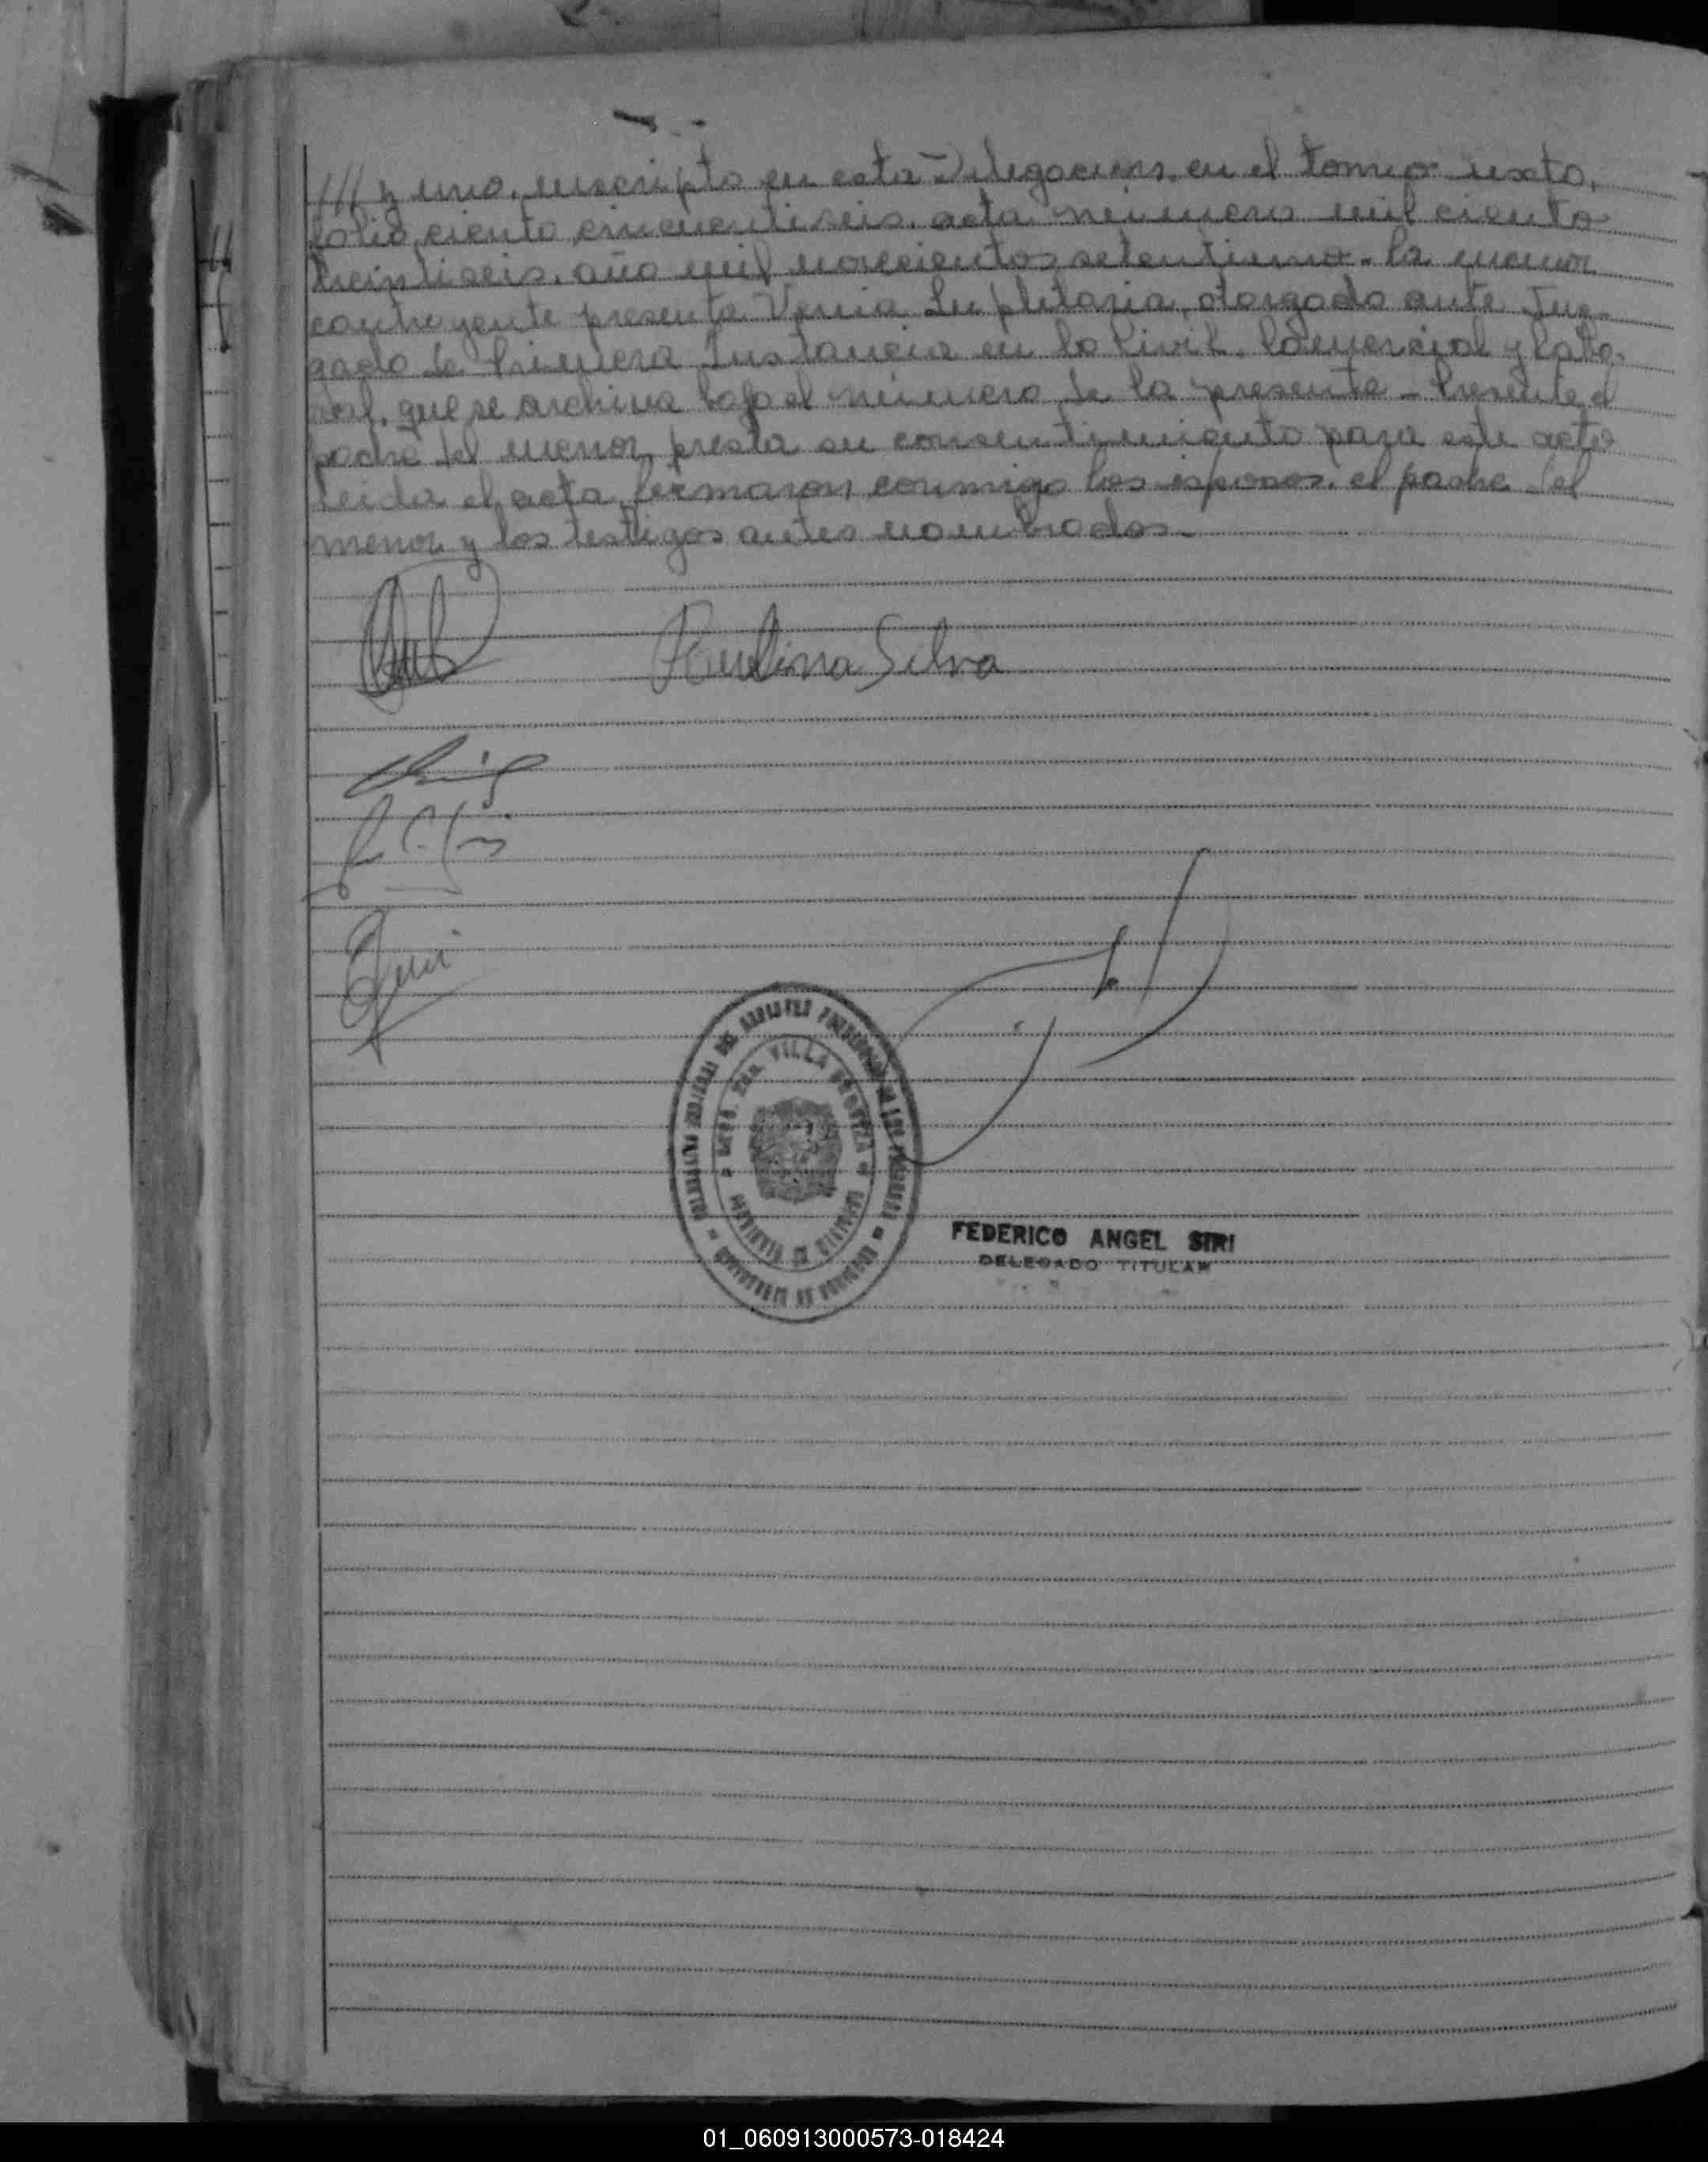 /// y uno, inscripto en esta Delegacion, en el tomo sexto,
folio ciento cincuentiseis, acta número mil ciento
treintiseis, año mil novecientos setentiuno - la menor
contrayente presenta Venia Supletoria, otorgado ante Juz-
gado de Primera Instancia en lo Civil, Comercial y Labo-
ral, que se archiva bajo el número de la presente - Presente el
padre del menor, presta su consentimiento para este acto
leida el acta, firmaron conmigo los esposos, el padre del
menor y los testigos antes nombrados -
Paulina Silva
VILLA
FEDERICO ANGEL SIRI
DELEGADO TITULAR
01_060913000573-018424